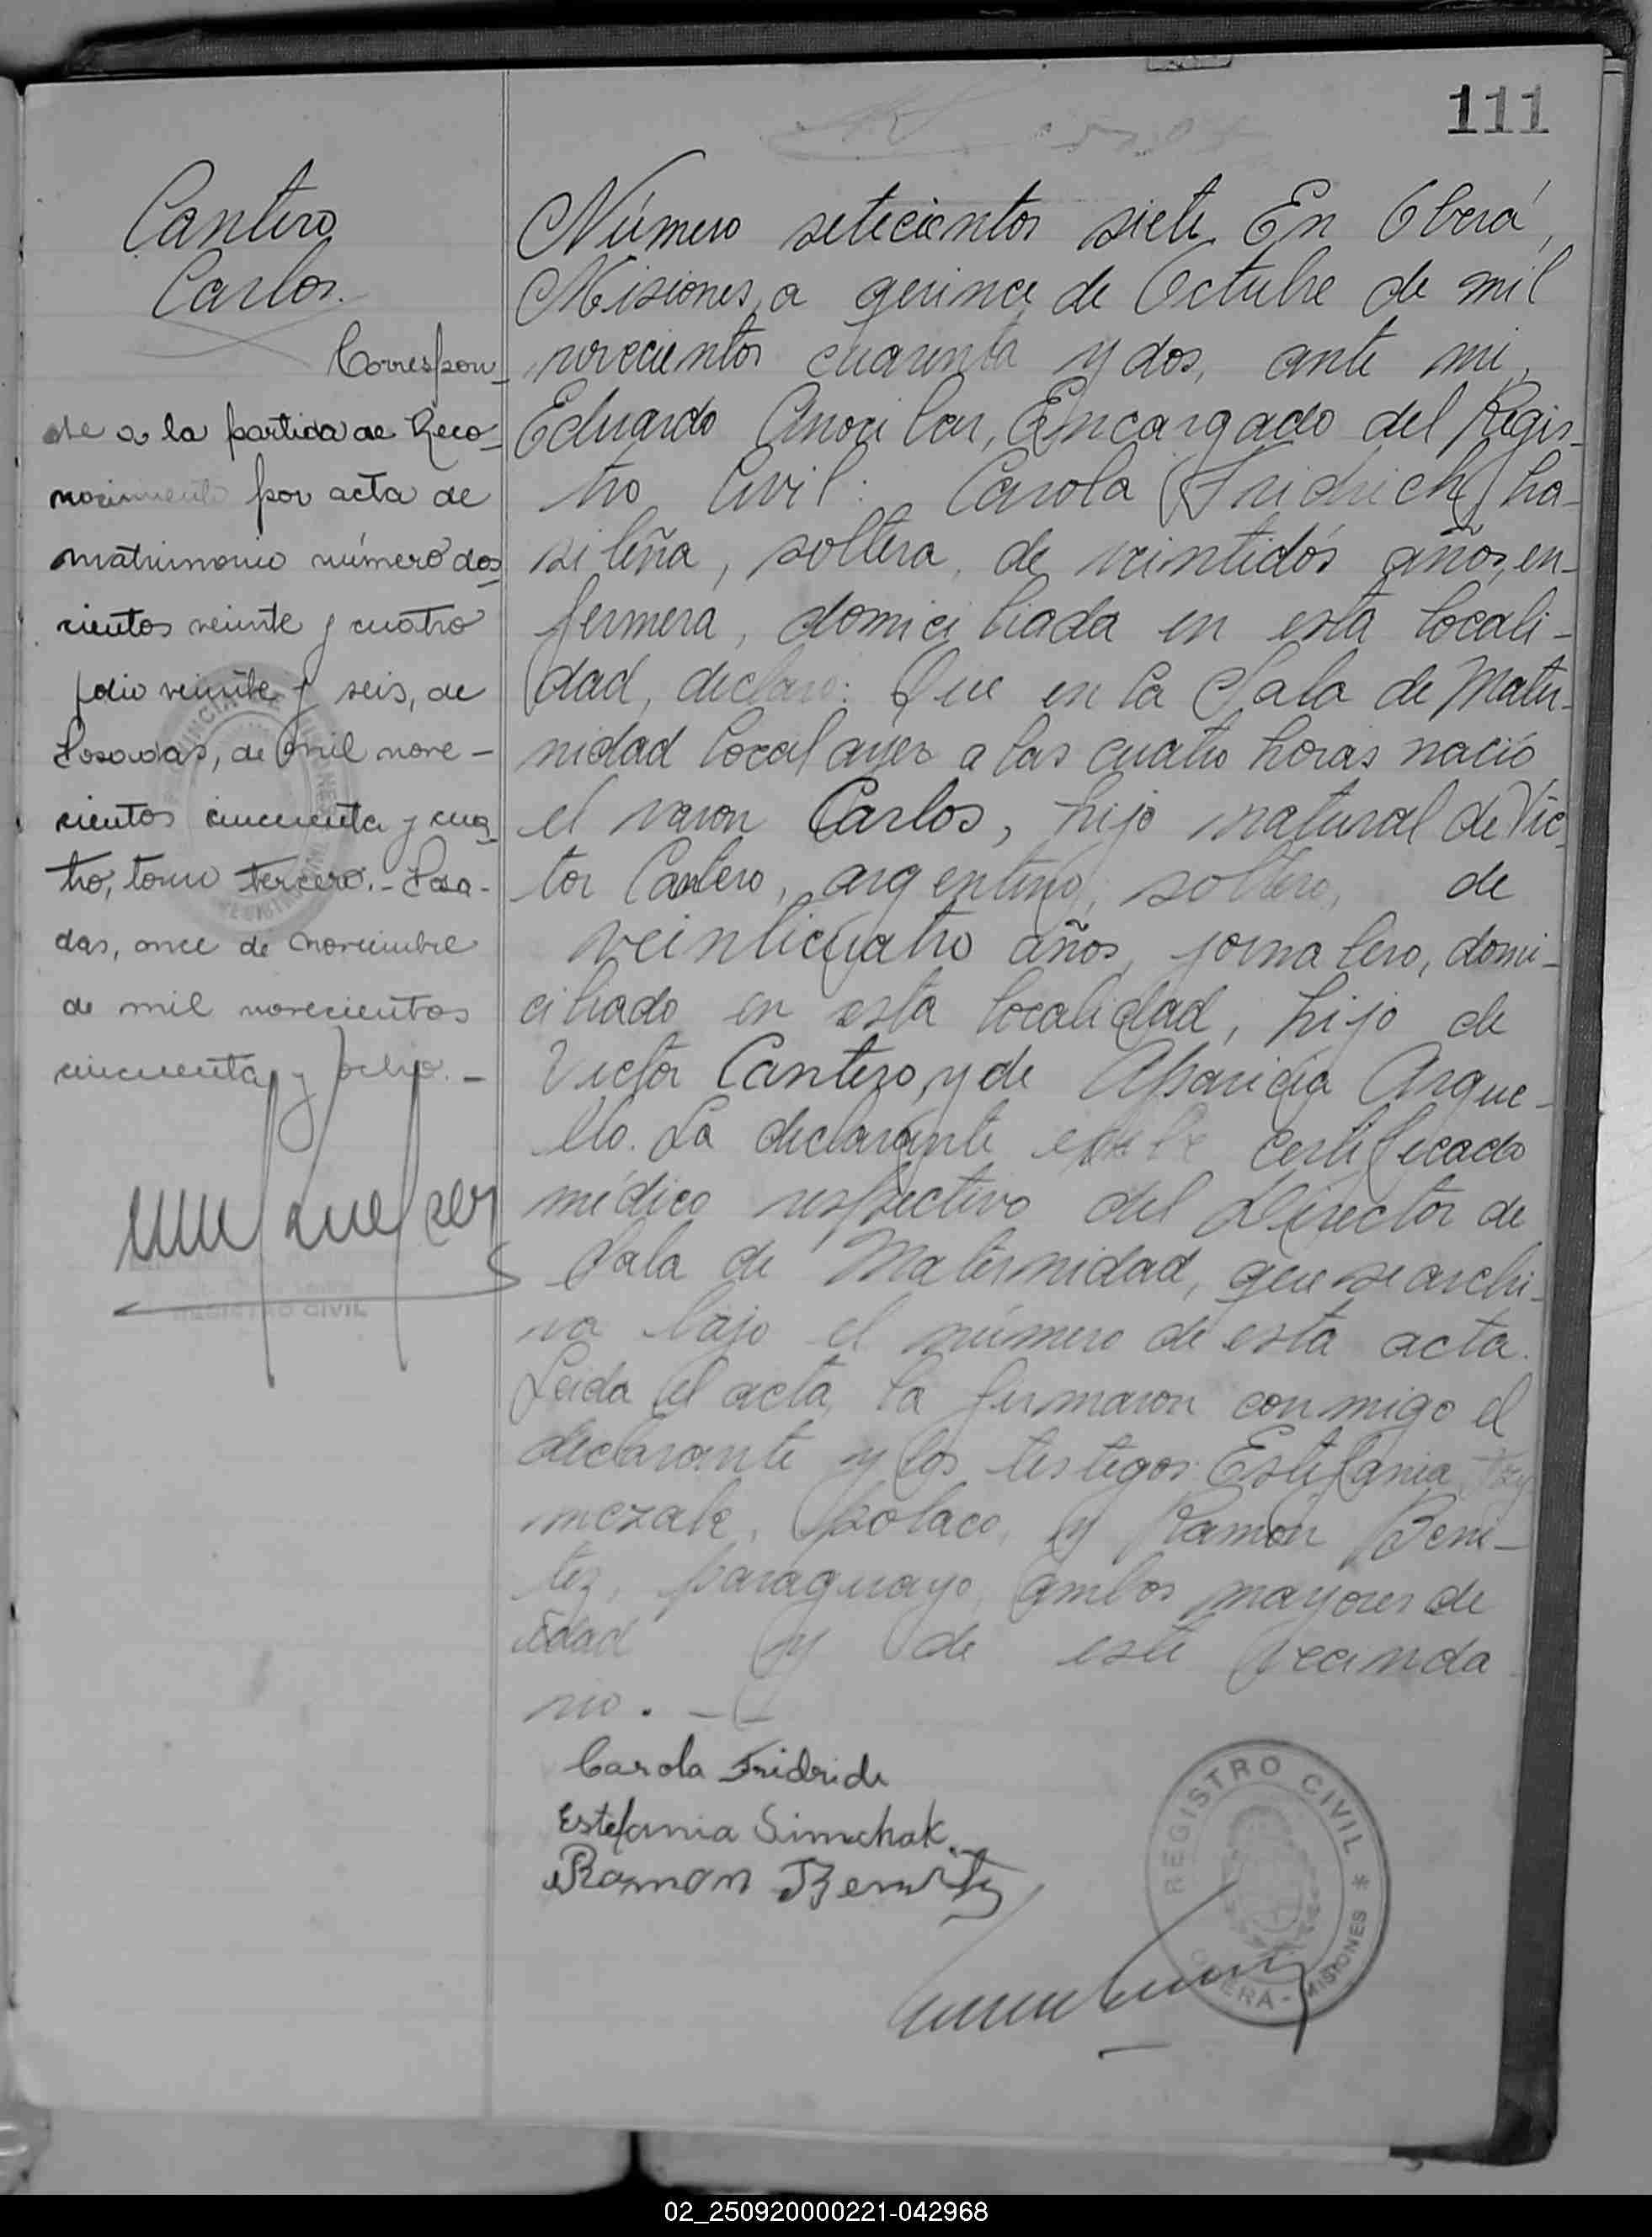 111
Cantero
Carlos.
Correspon-
de a la partida de Reco-
nocimiento por acta de
matrimonio número dos-
cientos veinte y cuatro
folio veinte y seis, de
Posadas, de mil nove-
cientos cincuenta y cua-
tro, tomo tercero.- Posa-
das, once de noviembre
de mil novecientos
cincuenta y ocho.-
REGISTRO CIVIL
Número setecientos siete. En Oberá,
Misiones, a quince de Octubre de mil
novecientos cuarenta y dos, ante mi,
Eduardo, Encargado del Regis-
tro Civil: Carola Fridrich, bra-
sileña, soltera, de veintidós años, en-
fermera, domiciliada en esta locali-
dad, declaro: Que en la Sala de Mater-
nidad local ayer a las cuatro horas nació
el varon Carlos, hijo natural de Vic-
tor Cantero, argentino, soltero, de
veinticuatro años, jornalero, domi-
ciliado en esta localidad, hijo de
Victor Cantero, y de Aparicia Argue-
llo. La declarante certificado
médico respectivo del Director de
Sala de Maternidad, que se archi-
va bajo el número de esta acta.
Leida el acta, la firmaron conmigo el
declarante y los testigos: Estefania
mczak, polaco, y Ramón Beni-
tez, paraguayo, ambos mayores de
edad y de este vecinda
rio. -
Carola Fridrich
Estefania Simchak.
Ramon Benitez
REGISTRO CIVIL * OBERA - MISIONES
02_250920000221-042968